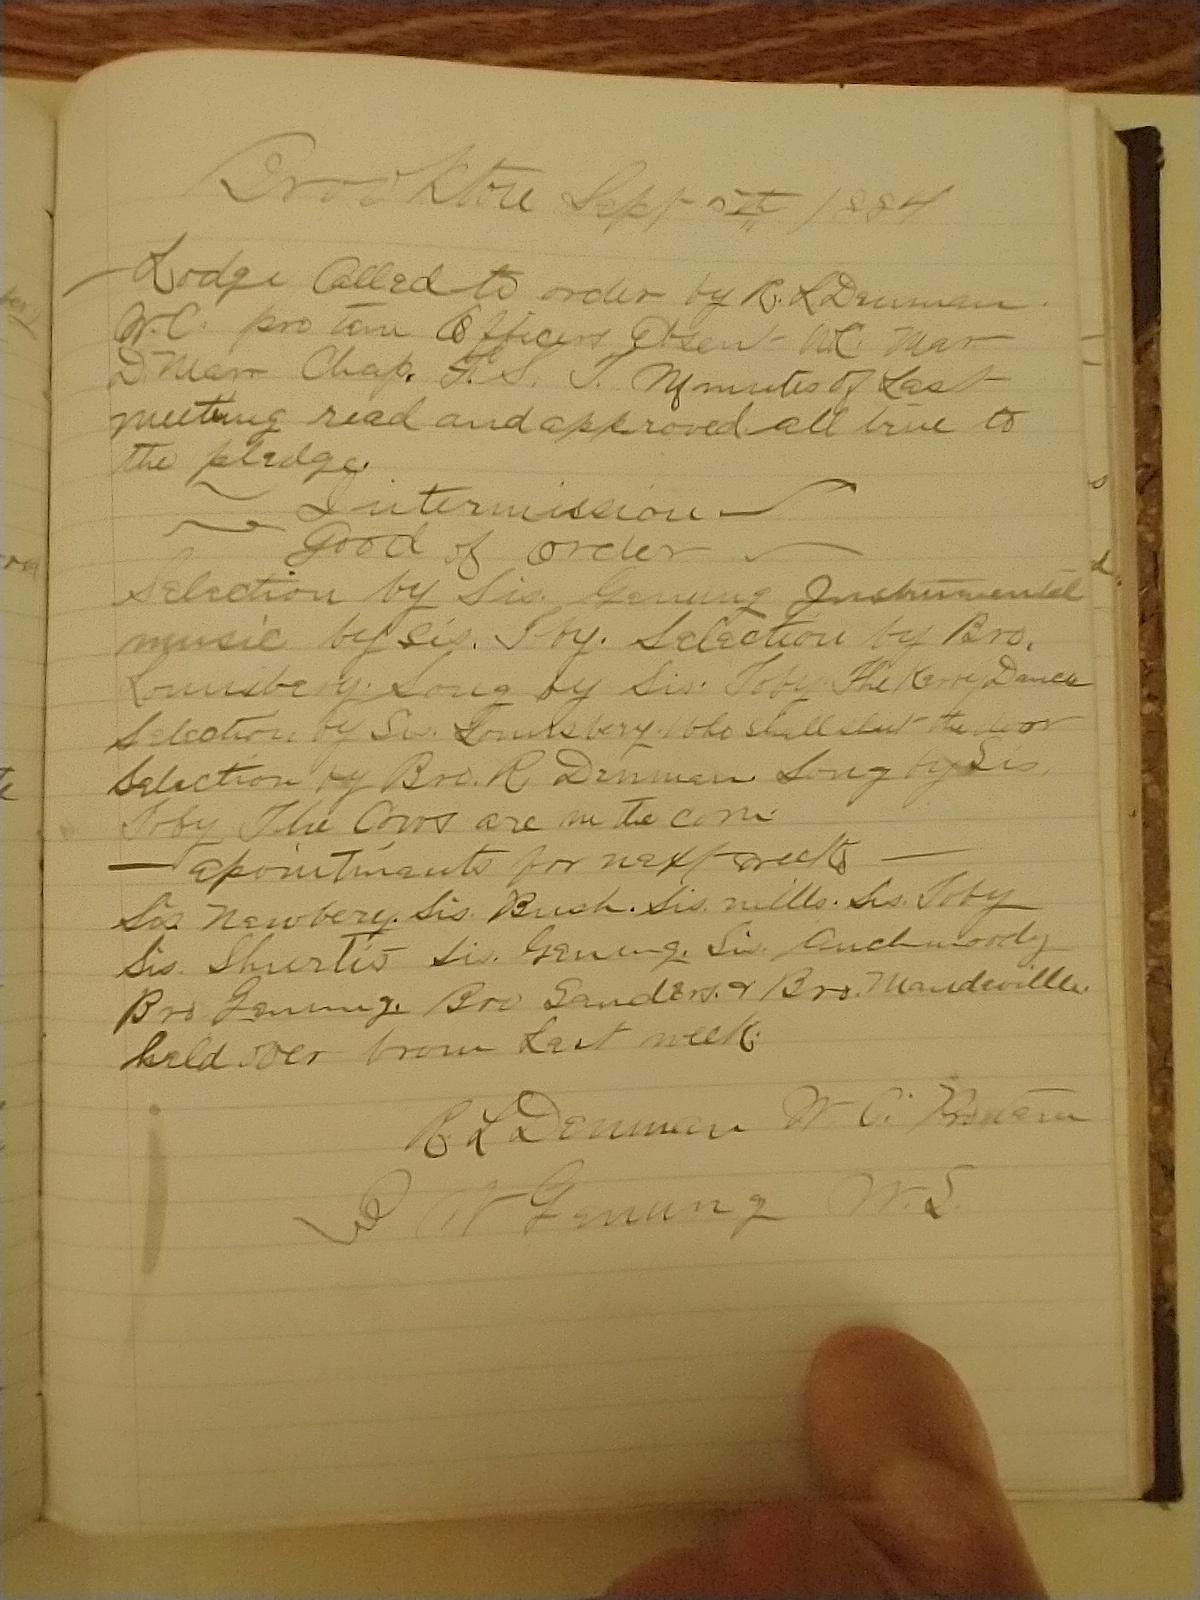 Brookton Sept 5th 1884
Lodge Called to order by R. L Denman
W.C. pro tem Officers Absent W.C. Mar
D. Mar Chap. F. S. T. Minutes of Last
meeting read and approved all true to
the pledge.
Intermission
Good of order
Selection by Sis. Genung Instrumental
music by Sis. Toby. Selection by Bro.
Lounsbery. Song by Sis. Toby The Kerry Dance
Selection by Sis. Lounsbery. Who shall shut the door
Selection by Bro. R. Denman Song by Sis.
Toby The Cows are in the corn
apointments for next week
Sis Newbery. Sis. Bush. Sis. mills. Sis. Toby
Sis. Shurtis Sis. Genung. Sis. Auchmoody
Bro Genung. Bro Sanders. & Bro. Mandeville.
held over from Last week.
R L Denman W. C. Protem
W Genung W.S.